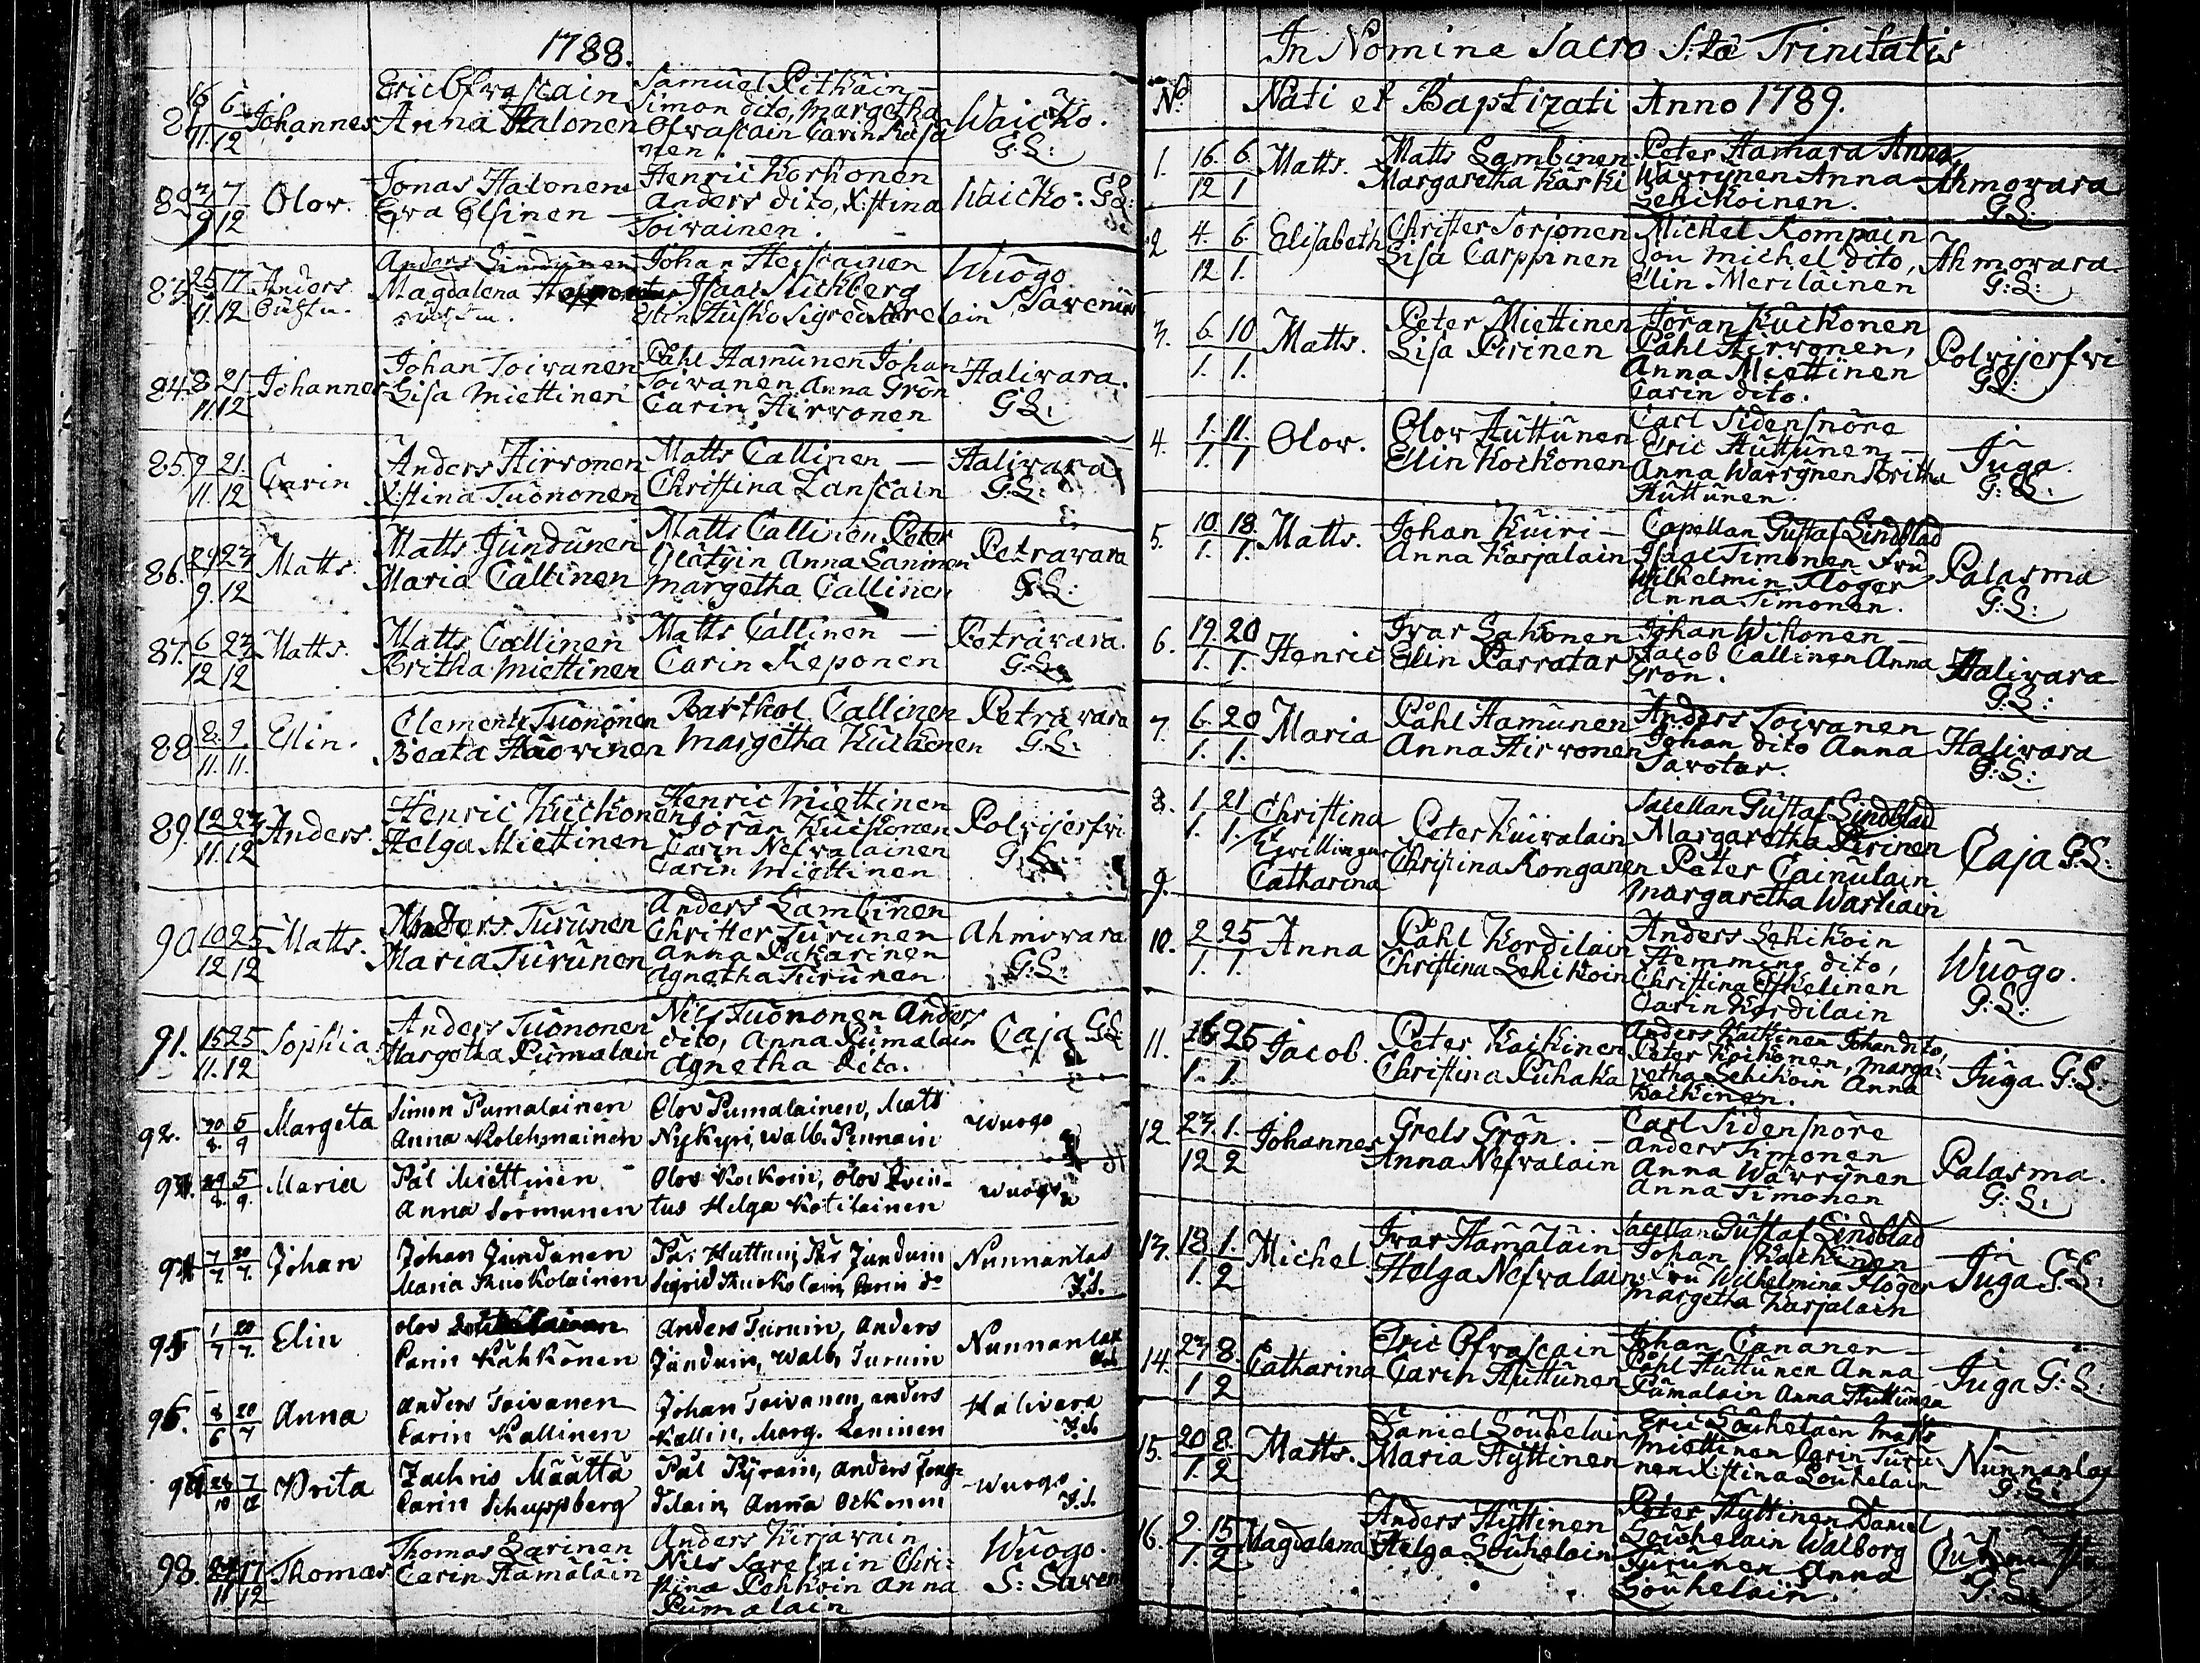 1788.
16 6
11. 12
Johannes
Eric Ofvascain
Anna Halonen
Samuel Pithäin
Simon dito, Margetha
Ofvascain Carin
nen.
Waicko.
G:L:
82 7
9 12
Olov.
Jonas Halonen
Eva Elsinen
Henric Korhonen
Anders dito, Xstina
Toivainen.
Waicko: G:L:
25 17
11. 12
Anders
Anders
Magdalena
Johan Heiscainen
Isaac Suckberg
Elin Husko Sigred Sarelain
Wuogo
S. Savenius
84. 8 21
11. 12
Johannes
Johan Toivanen
Lisa Miettinen
Påhl Hamunen Johan
Toivanen Anna Grön
Carin Hirvonen
Halivara.
G:L:
85. 9 21.
11. 12
Carin
Anders Hirvonen
Xstina Tuononen
Matts Callinen
Christina Lanscain
Halivara
G:L:
86. 29 23
9. 12
Matts.
Matts Jundunen
Maria Callinen
Matts Callinen Peter
Anna Saninen
Margetha Callinen
Petravara
G:L:
87. 6 23
12 12
Matts.
Matts Callinen
Britha Miettinen
Matts Callinen
Carin Reponen
Petravara.
G:L:
88 8. 9.
11. 11.
Elin.
Clemens Tuononen
Beata Huovinen
Barthol Callinen
Margetha
Petravara
G:L:
89. 12 23
11. 12
Anders.
Henric Kuckonen
Helga Miettinen
Henric Miettinen
Jöran Kuckonen
Carin Nefvalainen
Carin Miettinen
Polvijerfvi
G:L:
90 10 25
12 12
Matts.
Anders Turunen
Maria Turunen
Anders Lambinen
Christer Turunen
Anna Pakarinen
Agnetha Turunen
Ahmovara
G:L:
91. 15 25
11. 12
Sophia
Anders Tuononen
Margetha Pumalain
Nils Tuononen Anders
dito, Anna Pumalain
Agnetha dito.
Caja G:L:
92. 30 5
8. 9
Margeta
Simon Pumalainen
Anna Kolehmainen
Olov Pumalainen, Matts
Nykyri, Walb. Pennain
Wuogo
93. 29 5
8. 9.
Maria
Pål Miettinen
Anna Sormunen
Olov Kockoin, Olov Qvin-
tus Helga Kotilainen
Wuogo
94 7 20
7 7.
Johan
Johan Jundunen
Maria Kuokolainen
Pår Junduin
Carin do
Nunnanlax
J.S.
95 1 20
7 7.
Elin
Olov
Carin Kähkönen
Anders Turuin, Anders
Junduin, Walb. Turuin
Nunnanlax
96. 8 20
6 7
Anna
Anders Toivanen
Carin Kallinen
Johan Toivanen, Anders
Kallin, Marg. Laninen
Halivara
J.S.
28 7
10 12
Brita
Zachris Määttä
Carin Schuppberg
Pål Pyrain, Anders
Anna Ockonen
Wuogo
J.S.
98. 17
11 12
Thomas
Thomas Sarinen
Carin Hämäläin
Anders Kirjavain
Nils Sarelain Chri-
stina Anna
Pumalain
Wuogo.
S: Saven
In Nomine Sacro S:tæ Trinitatis
No. Nati et Baptizati Anno 1789.
1. 16. 6.
12 1
Matts.
Matts Lambinen
Margaretha Karki
Peter Hamara Anna
Wävrynen Anna
Lehikoinen.
Ahmovara
G:L:
2 4. 6.
12 1.
Elisabeth
Christer Sorjonen
Lisa Carppinen
Michel Rompain
Son Michel dito,
Elin Meriläinen
Ahmovara.
G:L:
3. 6. 10
1. 1.
Matts.
Peter Miettinen
Lisa Pirinen
Jöran Kuckonen
Påhl Hirvonen,
Anna Miettinen
Carin dito.
Polvijerfvi
G:L:
4. 1. 11.
1. 1
Olov.
Olov Huttunen
Elin Kockonen
Carl Sidensnöre
Eric Huttunen
Anna Wävrynen Britha
Huttunen.
Juga.
G:L:
5. 10. 18.
1. 1.
Matts.
Johan Kuiri
Anna Karjalain
Capellan Gustaf Lindblad
Isaac Timonen Fru
Wilhelmin Floger
Anna Timonen.
Palasma
G:L:
6. 19. 20
1. 1.
Henric
Ivar Sahonen
Elin Parvatar
Johan Wikonen
Jacob Callinen Anna
Grön.
Halivara
G:L:
7. 6. 20
1. 1.
Maria
Påhl Hamunen
Anna Hirvonen
Anders Toivanen
Johan dito Anna
Savotar.
Halivara
G:L:
8. 1. 21
1. 1.
Christina
Tvillingar
9. Catharina
Peter Kuivalain
Christina Ronganen
Sacellan Gustaf Lindblad
Margaretha Pirinen
Peter Cainulain
Margaretha Wartiain
Caja G:L:
10. 2 25
1. 1.
Anna
Påhl Kordilain
Christina Lehikoin
Anders Lehikoin
Hemming dito,
Christina Eskelinen
Carin Kordilain
Wuogo.
G:L:
11. 16 25
1. 1.
Jacob.
Peter Kaikinen
Christina Puhaka
Anders Kaikinen Johan dito,
Peter Koikonen, Marga-
retha Lehikoin Anna
Kaikinen.
Juga G:L:
12 23. 1.
12 2
Johannes
Grels Grön.
Anna Nefvalain
Carl Sidensnöre
Anders Timonen
Anna Wävrynen
Anna Timonen
Palasma.
G:L:
13. 18 1.
1. 2
Michel
Ivar Hämäläin
Helga Nefvalain
Sacellan Gustaf Lindblad
Johan Kaikinen
Fru Wilhelmina Floger
Margetha Karjalain
Juga G:L:
14. 23 8.
1 2
Catharina
Eric Ofvascain
Carin Huttunen
Johan Cananen
Påhl Huttunen Anna
Pumalain Anna Huttunen
Juga G:L:
15. 20 8.
1. 2
Matts.
Daniel Souhelain
Maria Hyttinen
Eric Souhelain Matts
Miettinen Carin Turu-
nen Xstina Souhelain
Nunnanlax
G:L:
16. 2. 15
1. 2
Magdalena
Anders Hyttinen
Helga Souhelain
Peter Hyttinen Daniel
Souhelain Walborg
Turunen Anna
Souhelain.
G:L: